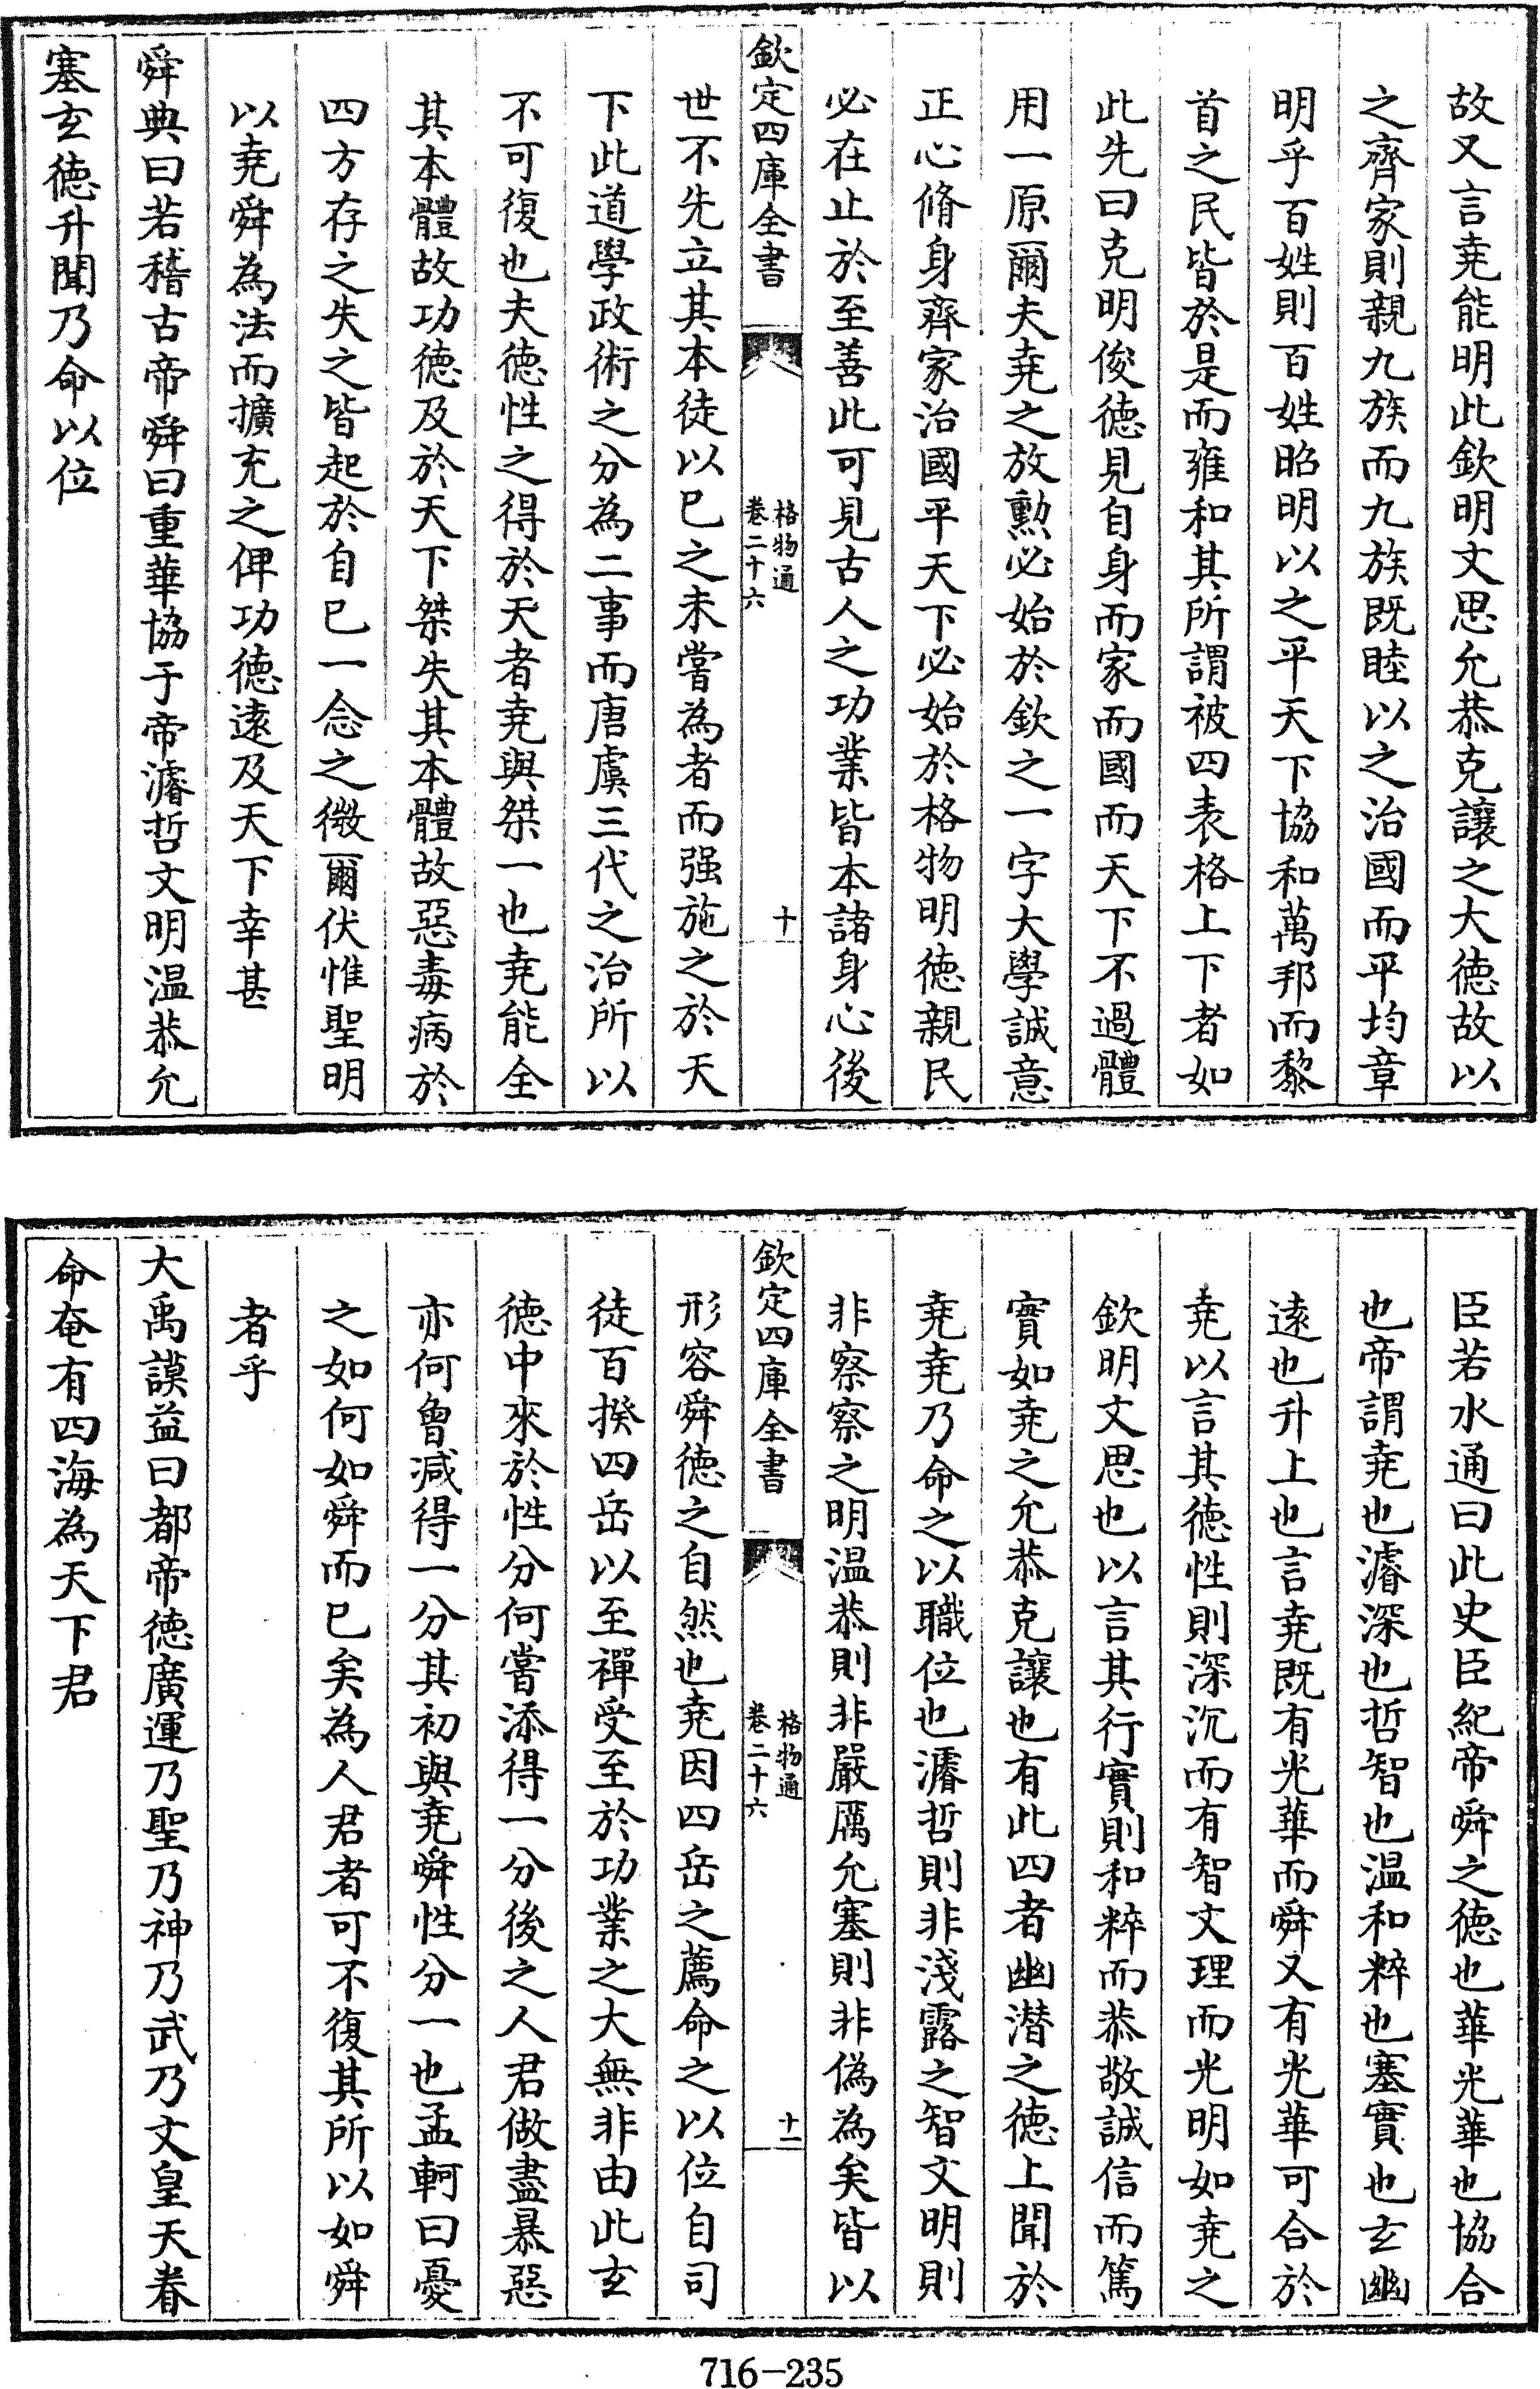 故又言堯能明此欽明文思允恭克讓之大德故以
之齊家則親九族而九族既睦以之治國而平均章
明乎百姓則百姓昭明以之平天下協和萬邦而黎
首之民皆於是而雍和其所謂被四表格上下者如
此先曰克明俊德見自身而家而國而天下不過體
用一原爾夫堯之放勲必始於欽之一字大學誠意
正心脩身齊家治國平天下必始於格物明德親民
必在止於至善此可見古人之功業皆本諸身心後
欽定四庫全書
格物通
卷二十六
十
世不先立其本徒以已之未嘗為者而强施之於天
下此道學政術之分為二事而唐虞三代之治所以
不可復也夫德性之得於天者堯與桀一也堯能全
其本體故功德及於天下桀失其本體故惡毒病於
四方存之失之皆起於自已一念之微爾伏惟聖明
以堯舜為法而擴充之俾功德遠及天下幸甚
舜典曰若稽古帝舜曰重華協于帝濬哲文明温恭允
塞玄德升聞乃命以位
臣若水通曰此史臣紀帝舜之德也華光華也協合
也帝謂堯也濬深也哲智也温和粹也塞實也玄幽
遠也升上也言堯既有光華而舜又有光華可合於
堯以言其德性則深沉而有智文理而光明如堯之
欽明文思也以言其行實則和粹而恭敬誠信而篤
實如堯之允恭克讓也有此四者幽潛之德上聞於
堯堯乃命之以職位也濬哲則非淺露之智文明則
非察察之明温恭則非嚴厲允塞則非偽為矣皆以
欽定四庫全書
格物通
卷二十六
十一
形容舜德之自然也堯因四岳之薦命之以位自司
徒百揆四岳以至禪受至於功業之大無非由此玄
德中來於性分何嘗添得一分後之人君做盡暴惡
亦何曾减得一分其初與堯舜性分一也孟軻曰憂
之如何如舜而已矣為人君者可不復其所以如舜
者乎
大禹謨益曰都帝德廣運乃聖乃神乃武乃文皇天眷
命奄有四海為天下君
716-235